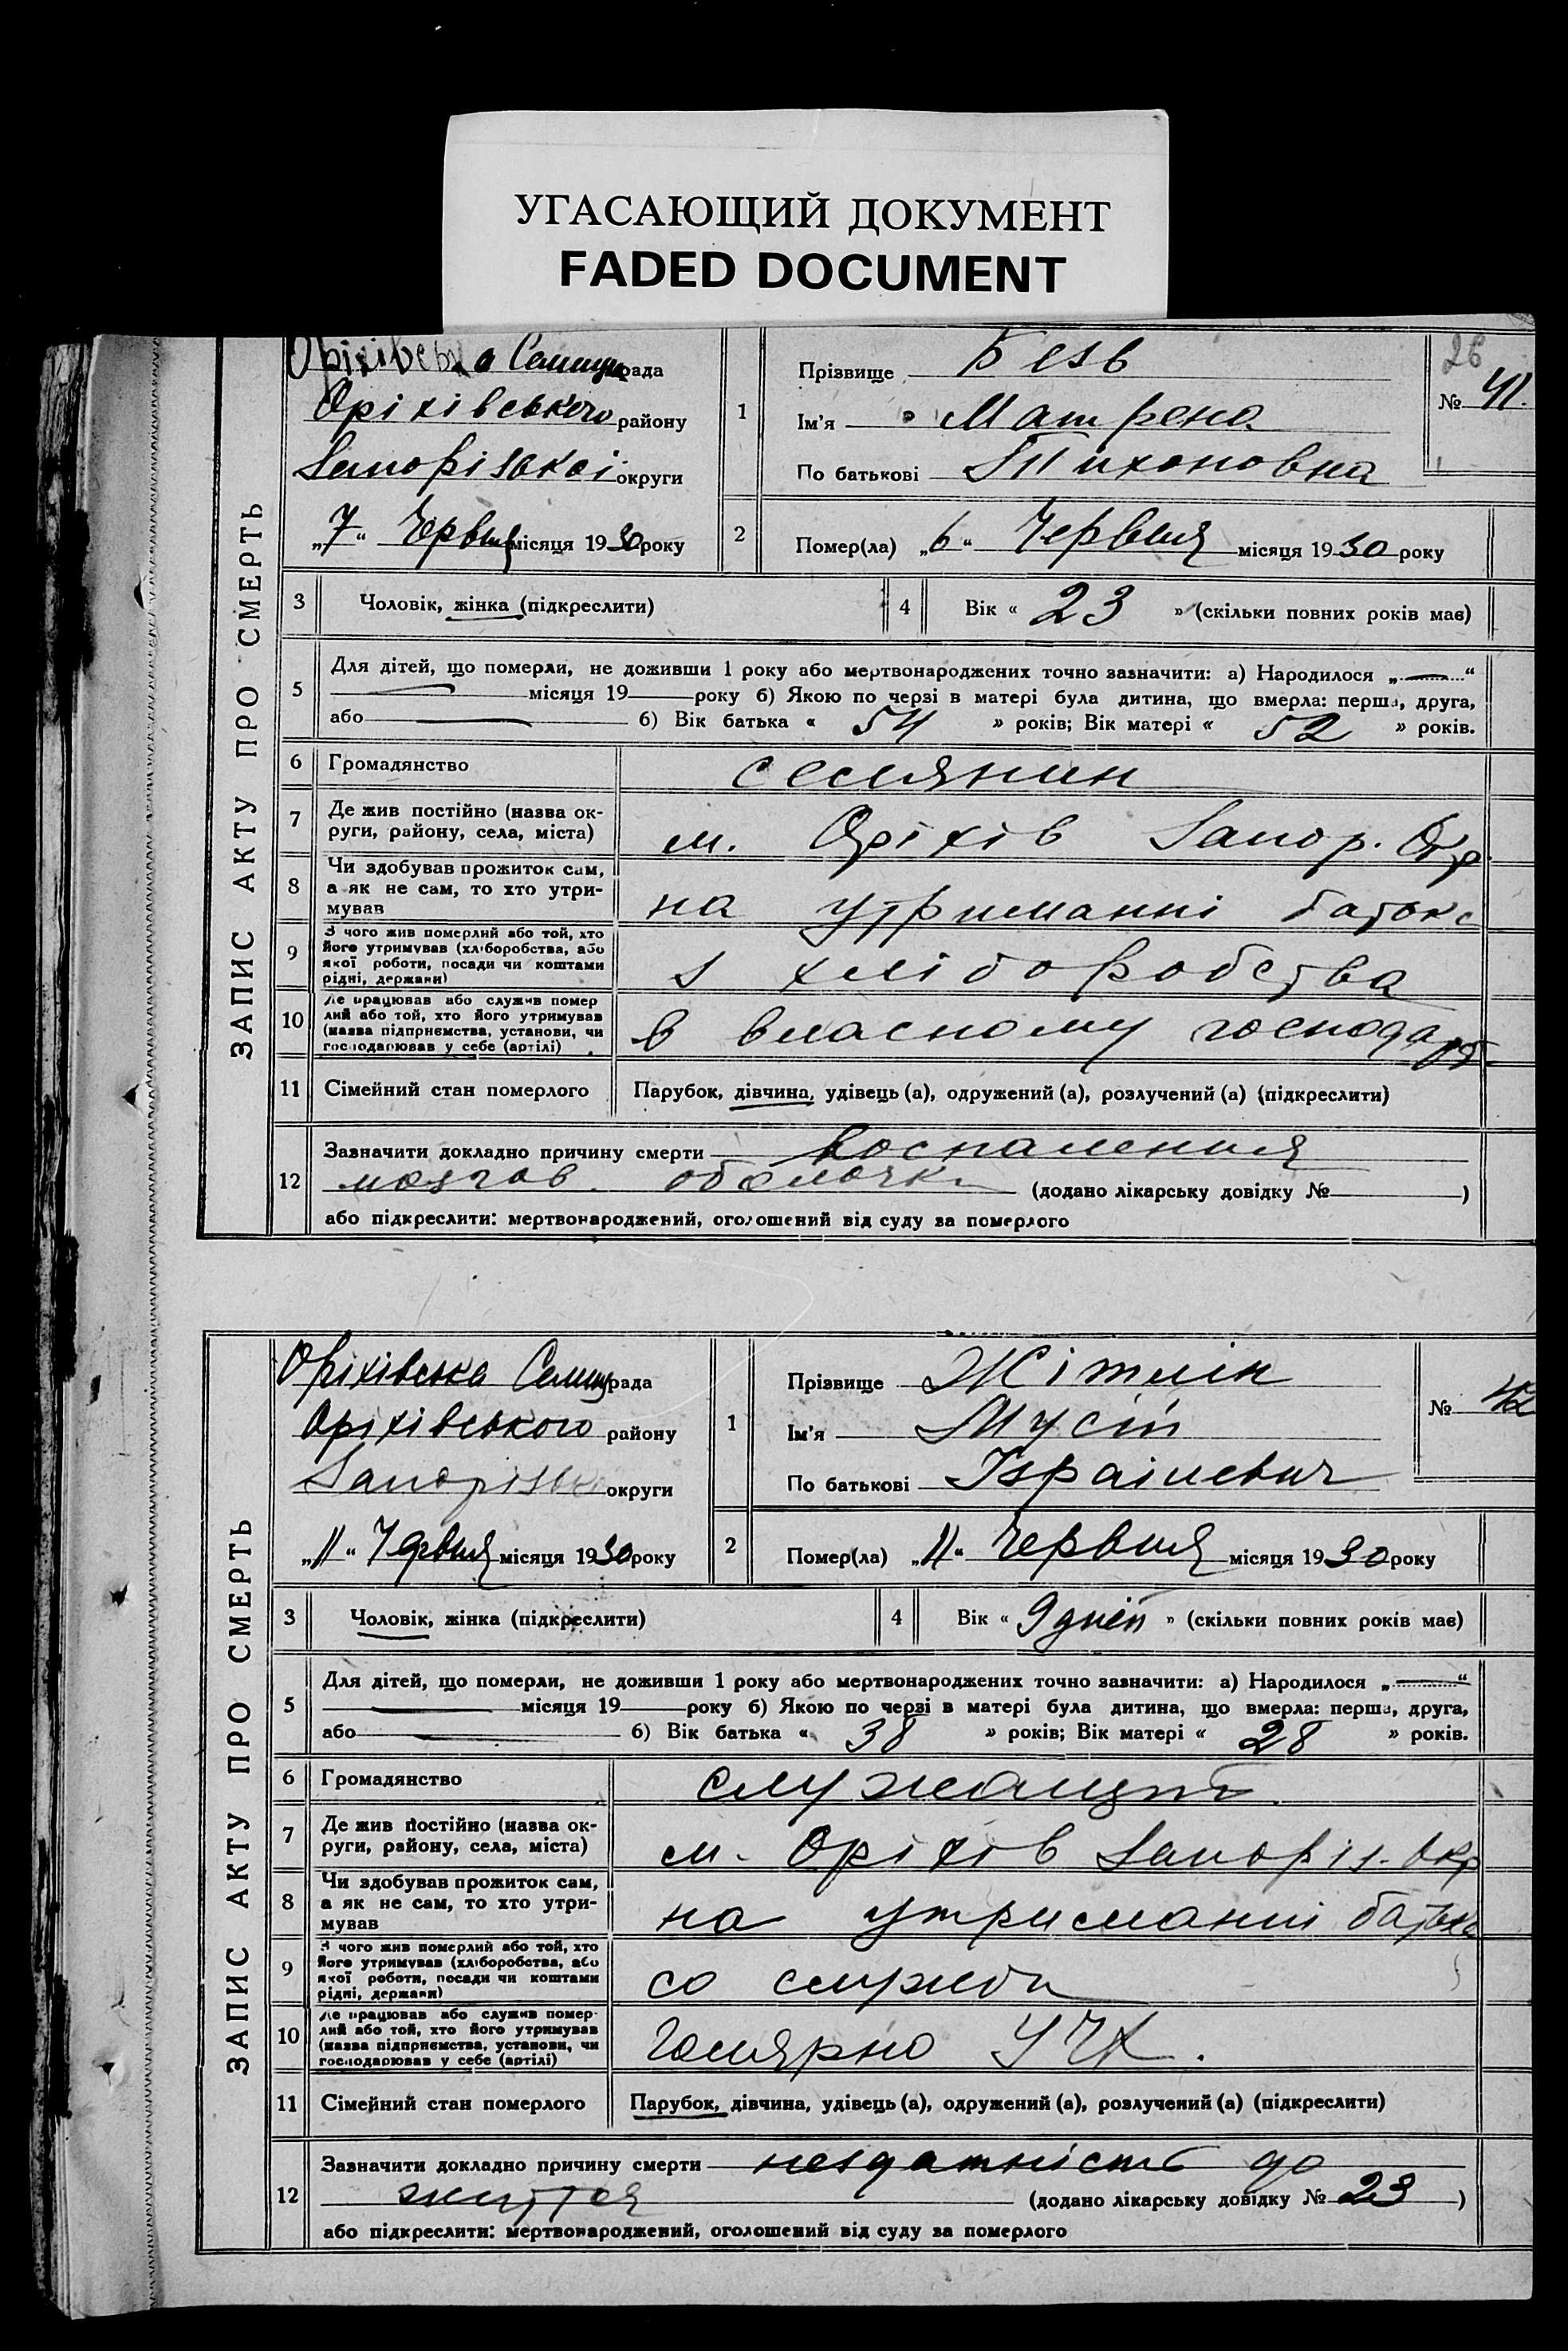 УГАСАЮЩИЙ ДОКУМЕНТ
FADED DOCUMENT
26
ЗАПИС АКТУ ПРО СМЕРТЬ
Оріхівська Селищ рада
Оріхівського району
Запорізької округи
„7“ Червня місяця 1930 року
1
Прізвище Безь
Ім'я Матрена
По батькові Тихоновна
№ 41.
2
Помер(ла) „6“ Червня місяця 1930 року
3 Чоловік, жінка (підкреслити)
4 Вік « 23 » (скільки повних років має)
5 Для дітей, що померли, не доживши 1 року або мертвонароджених точно зазначити: а) Народилося „ “
місяця 19 року б) Якою по черзі в матері була дитина, що вмерла: перша, друга,
або б) Вік батька « 54 » років; Вік матері « 52 » років.
6 Громадянство селянин
7 Де жив постійно (назва ок-
руги, району, села, міста)
м. Оріхів Запор. Окр.
8 Чи здобував прожиток сам,
а як не сам, то хто утри-
мував
на утриманні батька
9 З чого жив померлий або той, хто
його утримував (хліборобства, або
якої роботи, посади чи коштами
рідні, держави)
з хліборобства
10 Де працював або служив помер
лий або той, хто його утримував
(назва підприємства, установи, чи
господарював у себе (артілі)
в власному господарст.
11 Сімейний стан померлого Парубок, дівчина, удівець (а), одружений (а), розлучений (а) (підкреслити)
12 Зазначити докладно причину смерти воспаления
мозгов. оболочки (додано лікарську довідку № )
або підкреслити: мертвонароджений, оголошений від суду за померлого
ЗАПИС АКТУ ПРО СМЕРТЬ
Оріхівська Селищ рада
Оріхівського району
Запорізьк округи
„11“ Червня місяця 1930 року
1
Прізвище Жітлін
Ім'я Мусій
По батькові Ізраілевич
№ 42
2
Помер(ла) „11“ Червня місяця 1930 року
3 Чоловік, жінка (підкреслити)
4 Вік « 9 дней » (скільки повних років має)
5 Для дітей, що померли, не доживши 1 року або мертвонароджених точно зазначити: а) Народилося „ “
місяця 19 року б) Якою по черзі в матері була дитина, що вмерла: перша, друга,
або б) Вік батька « 38 » років; Вік матері « 28 » років.
6 Громадянство служащий
7 Де жив постійно (назва ок-
руги, району, села, міста)
м. Оріхів Запоріз. Окр
8 Чи здобував прожиток сам,
а як не сам, то хто утри-
мував
на утриманні батька
9 З чого жив померлий або той, хто
його утримував (хліборобства, або
якої роботи, посади чи коштами
рідні, держави)
со служби
10 Де працював або служив помер-
лий або той, хто його утримував
(назва підприємства, установи, чи
господарював у себе (артілі)
11 Сімейний стан померлого Парубок, дівчина, удівець (а), одружений (а), розлучений (а) (підкреслити)
12 Зазначити докладно причину смерти нездатність до
життя (додано лікарську довідку № 23 )
або підкреслити: мертвонароджений, оголошений від суду за померлого